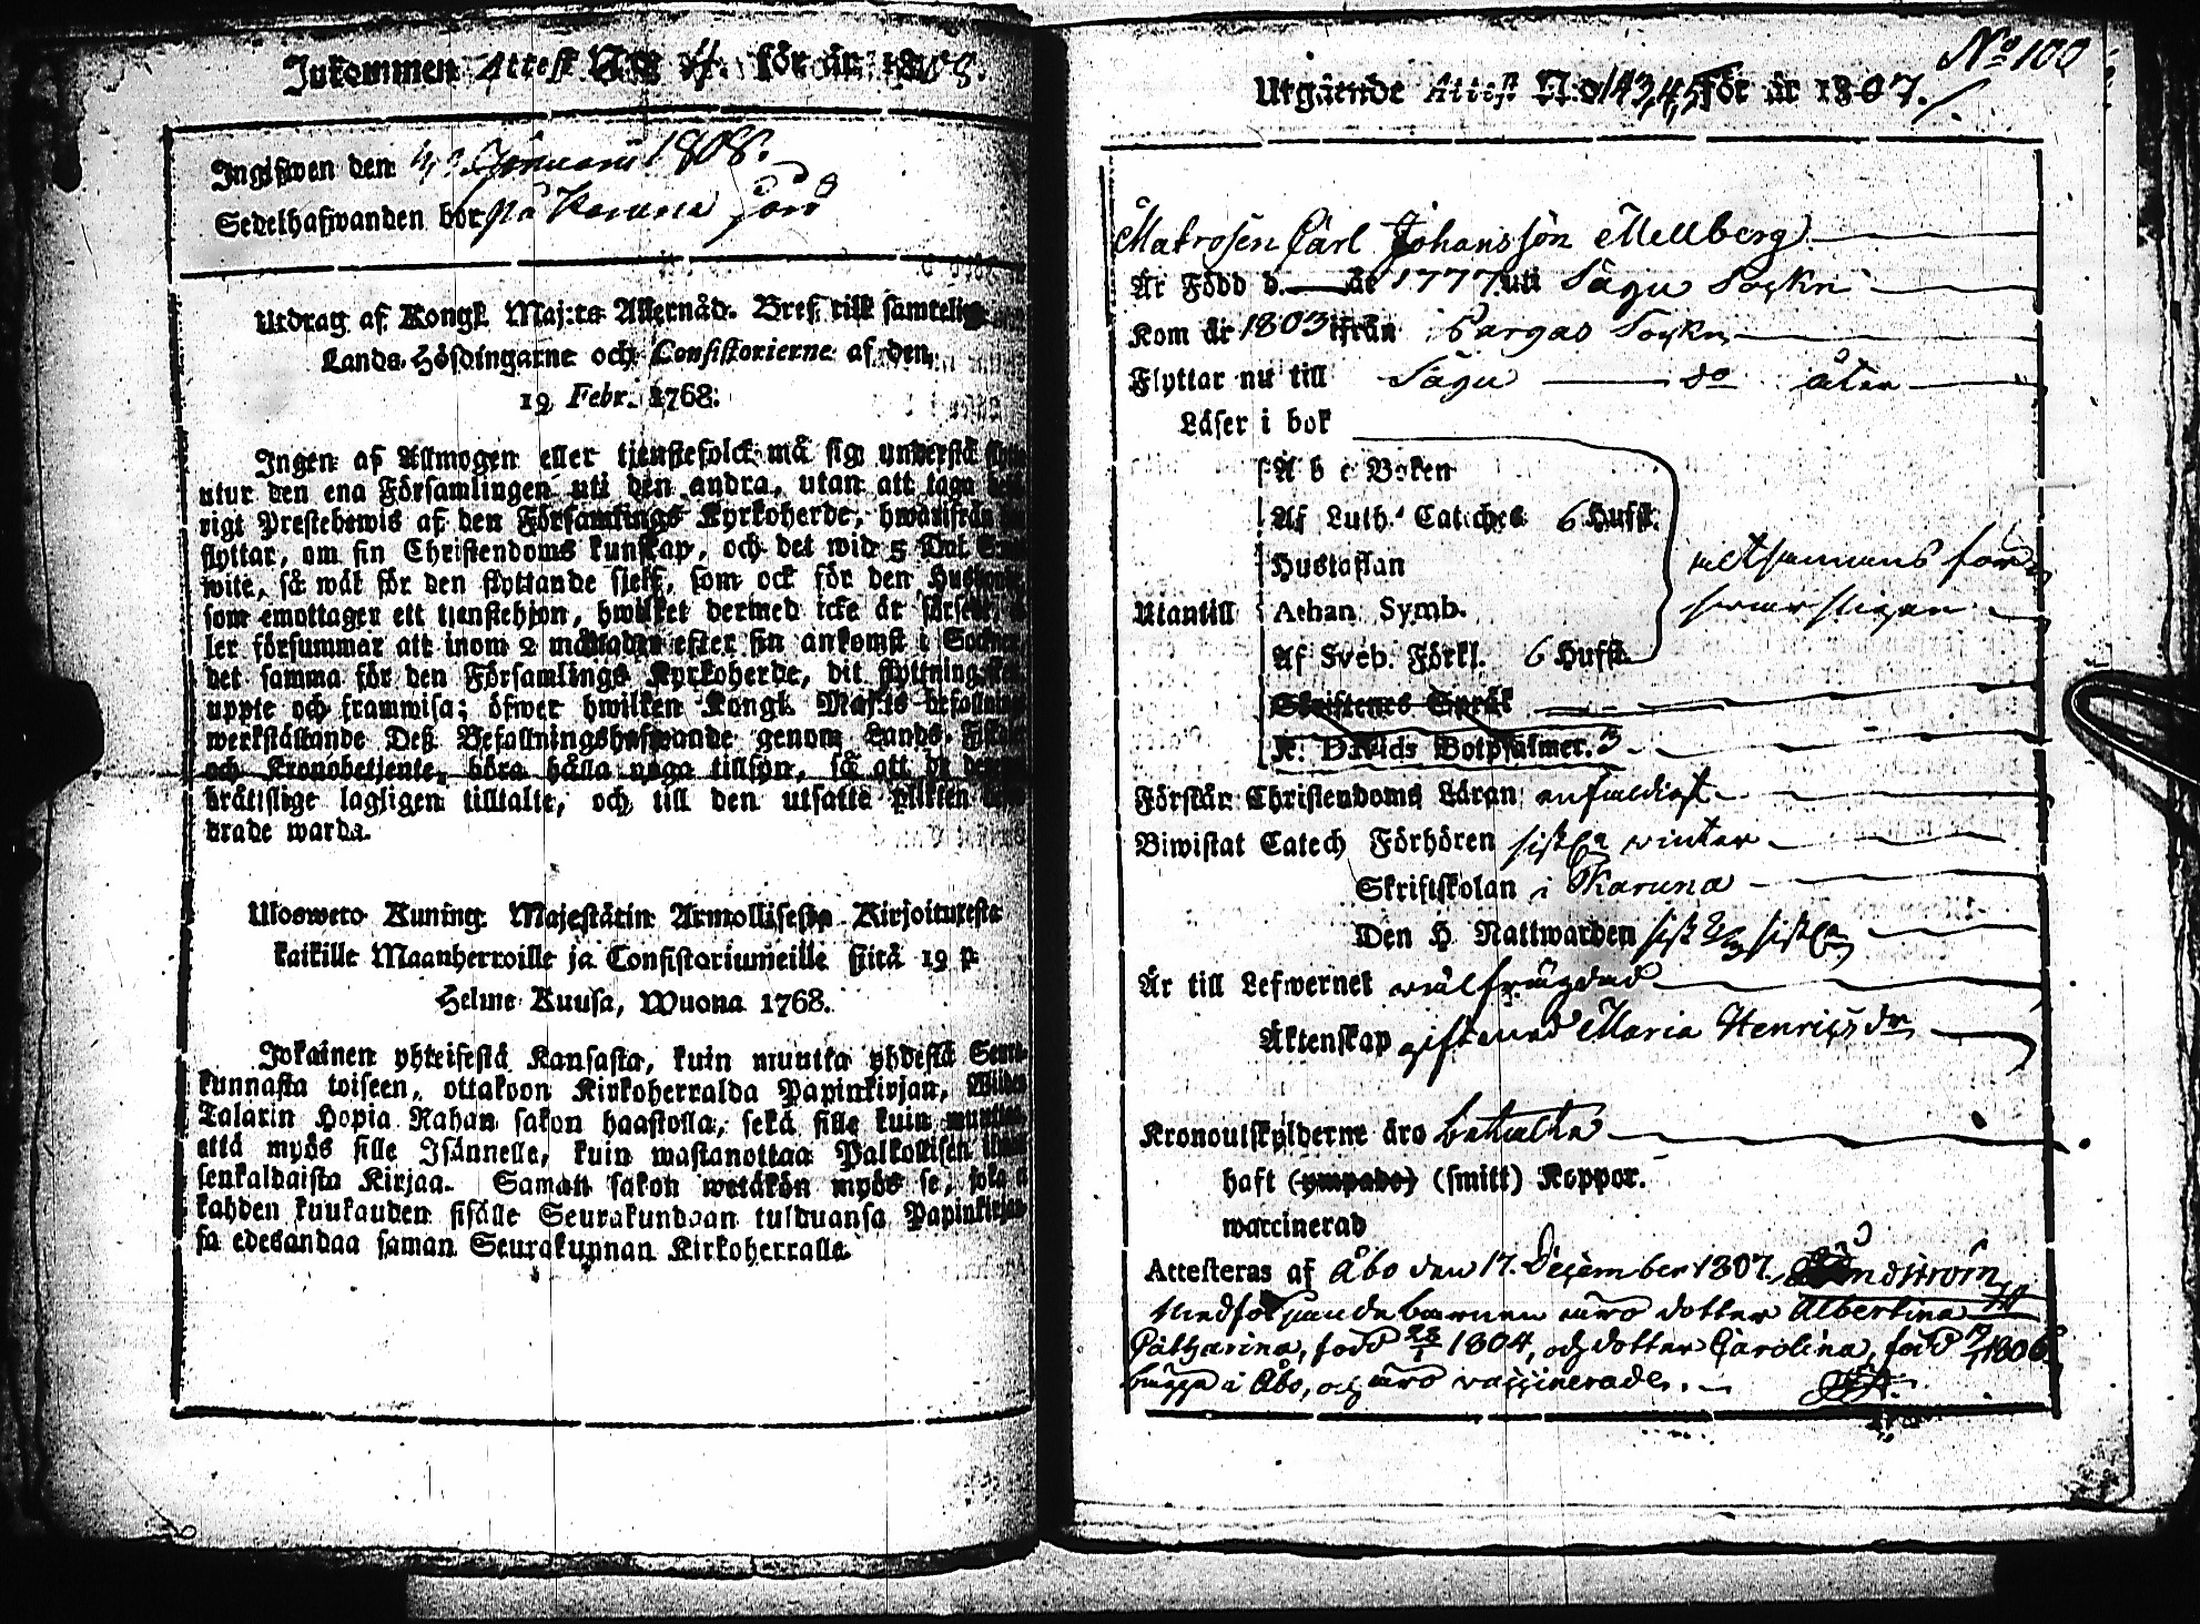 Inkommen Attest N:o 4. för år 1808.
Ingifwen den Januarii 1808.
Sedelhafwanden bor på Karuna jord
Utdrag af Kongl. Maj:ts Allernåd. Bref till samtelige
Lands-Höfdingarne och Consistorierne af den
19 Febr. 1768.
Ingen af Allmogen eller tjenstefolck må sig understå
utur den ena Församlingen uti den andra, utan att taga
rigt Prestebewis af den Församlings Kyrkoherde, hwarifrån
flyttar, om sin Christendoms kunskap, och det wid 5 Dal.
wite, så wäl för den flyttande sjelf, som ock för den
som emottager ett tjenstehjon, hwilket dermed icke är
ler försummar att inom 2 månader efter sin ankomst i
det samma för den Församlings Kyrkoherde, dit flyttning
uppte och framwisa; öfwer hwilken Kongl. Maj:ts befallning
werkställande Deß Befallningshafwande genom Lands-
och Kronobetjente, böra hålla noga tillsyn, så att
brätslige lagligen tilltalte, och till den utsatte plikten
drade warda.
Uloswero Kuning. Majestätin Armollisesta Kirjoituxesta
kaikille Maanherroille ja Consistoriumeille siitä 19 p.
Helme Kuusa, Wuona 1768.
Jokainen yhteisestä Kansasta, kuin muutta yhdestä Seura-
kunnasta toiseen, ottakoon Kirkoherralda Papinkirjan,
Talarin Hopia Rahan sakon haastolla, sekä sille kuin
että myös sille Isännelle, kuin wastanottaa Palkollisen
senkaldaista Kirjaa. Saman sakon wetäkön myös se, joka
kahden kuukauden sisälle Seurakundaan tulduansa Papinkirjan-
sa edesandaa saman Seurakunnan Kirkoherralle.
No 100
Utgående Attest N:o 143,4,5 för år 1807.
Matrosen Carl Johansson Mellberg
Är Född d. — år 1777 uti Sagu Sockn
Kom år 1803 ifrån Pargas Sockn
Flyttar nu till Sagu — do åter
Läser i bok
A b c Boken
Af Luth. Cateches 6 Hufst.
Hustaflan
Utantill Athan. Symb.
Af Sveb. Förkl. 6 Hufst.
Skriftenes Språk
K. Davids Botpsalmer. 3
Förstår Christendoms Läran enfaldigt
Biwistat Catech Förhören sistl. winter
Skriftskolan i Karuna
Den H. Nattwarden sist
Är till Lefwernet wälfrägdad
Äktenskap gift med Maria Henricsdr
Kronoutskylderne äro betalta
haft (ympade) (smitt) Koppor.
waccinerad
Attesteras af Åbo den 17. December 1807.
Medföljande barnen äro dotter Albertina
Catharina, född 28/1 1804, och dotter Carolina, född 1806
bägge i Åbo, och äro vaccinerade.